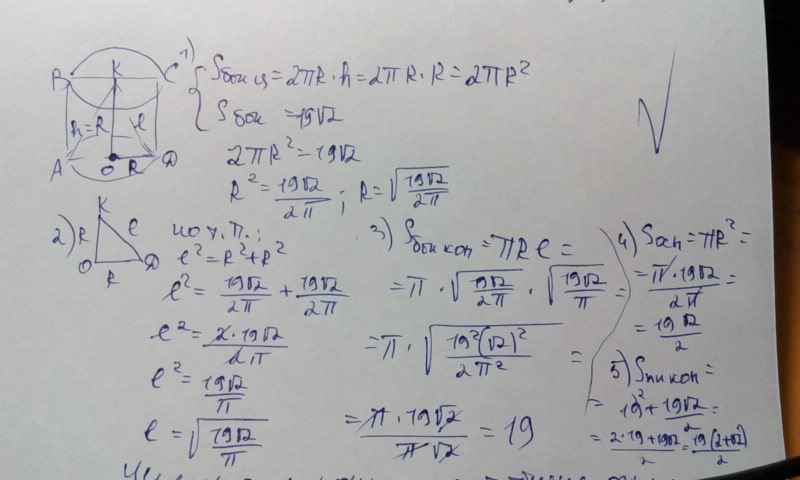 B K C
h=R l
A O R D
1) Sбок ц = 2πR · h = 2πR · R = 2πR²
Sбок = 19√2
2πR² = 19√2
R² = 19√2/2π ; R = √(19√2/2π)
2) K
R l
O R D
по т. П.:
l² = R² + R²
l² = 19√2/2π + 19√2/2π
l² = 2·19√2/2π
l² = 19√2/π
l = √(19√2/π)
3) Sбок кон = πRl =
= π · √(19√2/2π) · √(19√2/π) =
= π · √(19²(√2)²/2π²) =
= π·19√2/π√2 = 19
4) Sосн = πR² =
= π·19√2/2π =
= 19√2/2
5) Sпп кон =
= 19 + 19√2/2 =
= 2·19+19√2/2 = 19(2+√2)/2